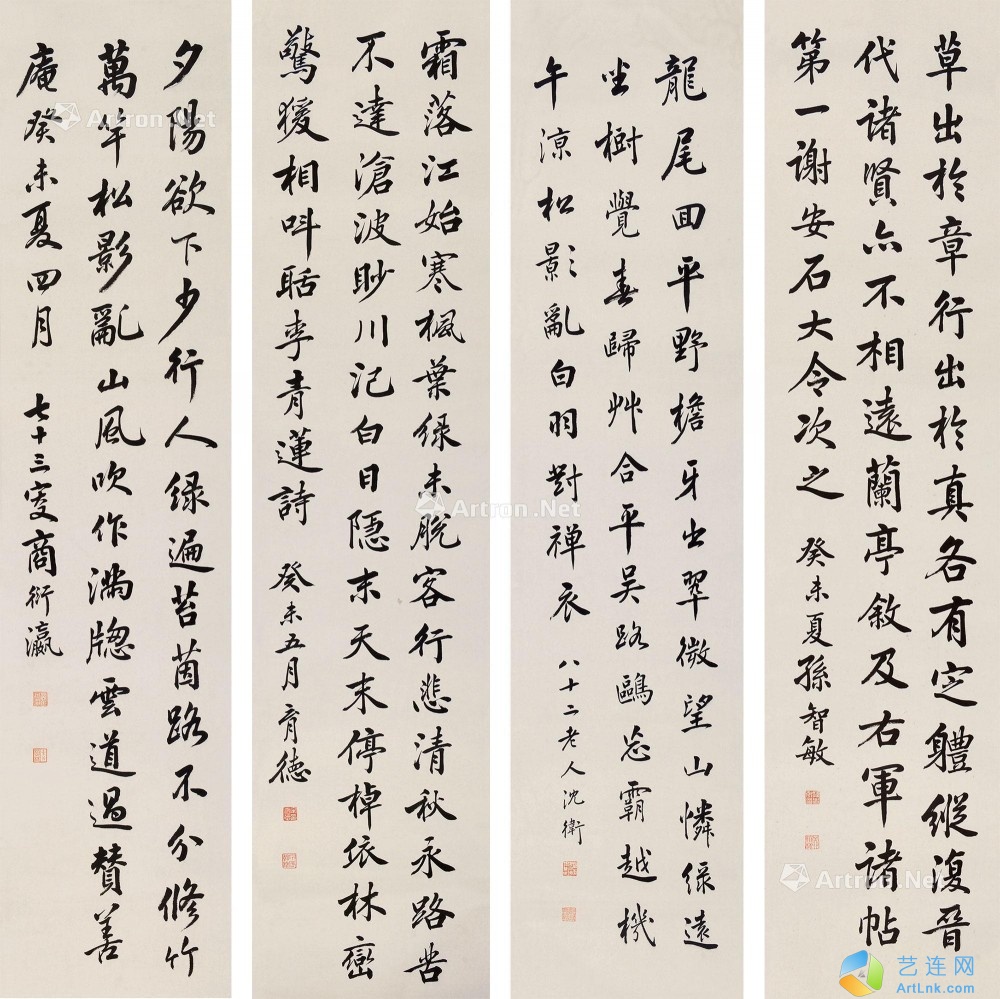 草出於章行出於真各有定軆縱復晉
代諸賢亦不相遠蘭亭敘及右軍諸帖
第一謝安石大令次之
癸未夏孫智敏
龍尾回平野檐牙出翠微望山憐綠遠
坐樹覺春歸艸合平吳路鷗忘霸越機
午涼松影亂白羽對禅衣
八十二老人沈衛
霜落江始寒楓葉綠未脫客行悲清秋永路苦
不達滄波眇川汜白日隱末天末停棹依林巒
驚猨相叫聒李青蓮詩
癸未五月育德
夕陽欲下少行人綠遍苔茵路不分修竹
萬竿松影亂山風吹作滿牕雲道過贊善
庵癸未夏四月
七十三叟商衍瀛
Artron.Net
Artron.Net
Artron.Net
Artron.Net
艺连网
ArtLnk.com